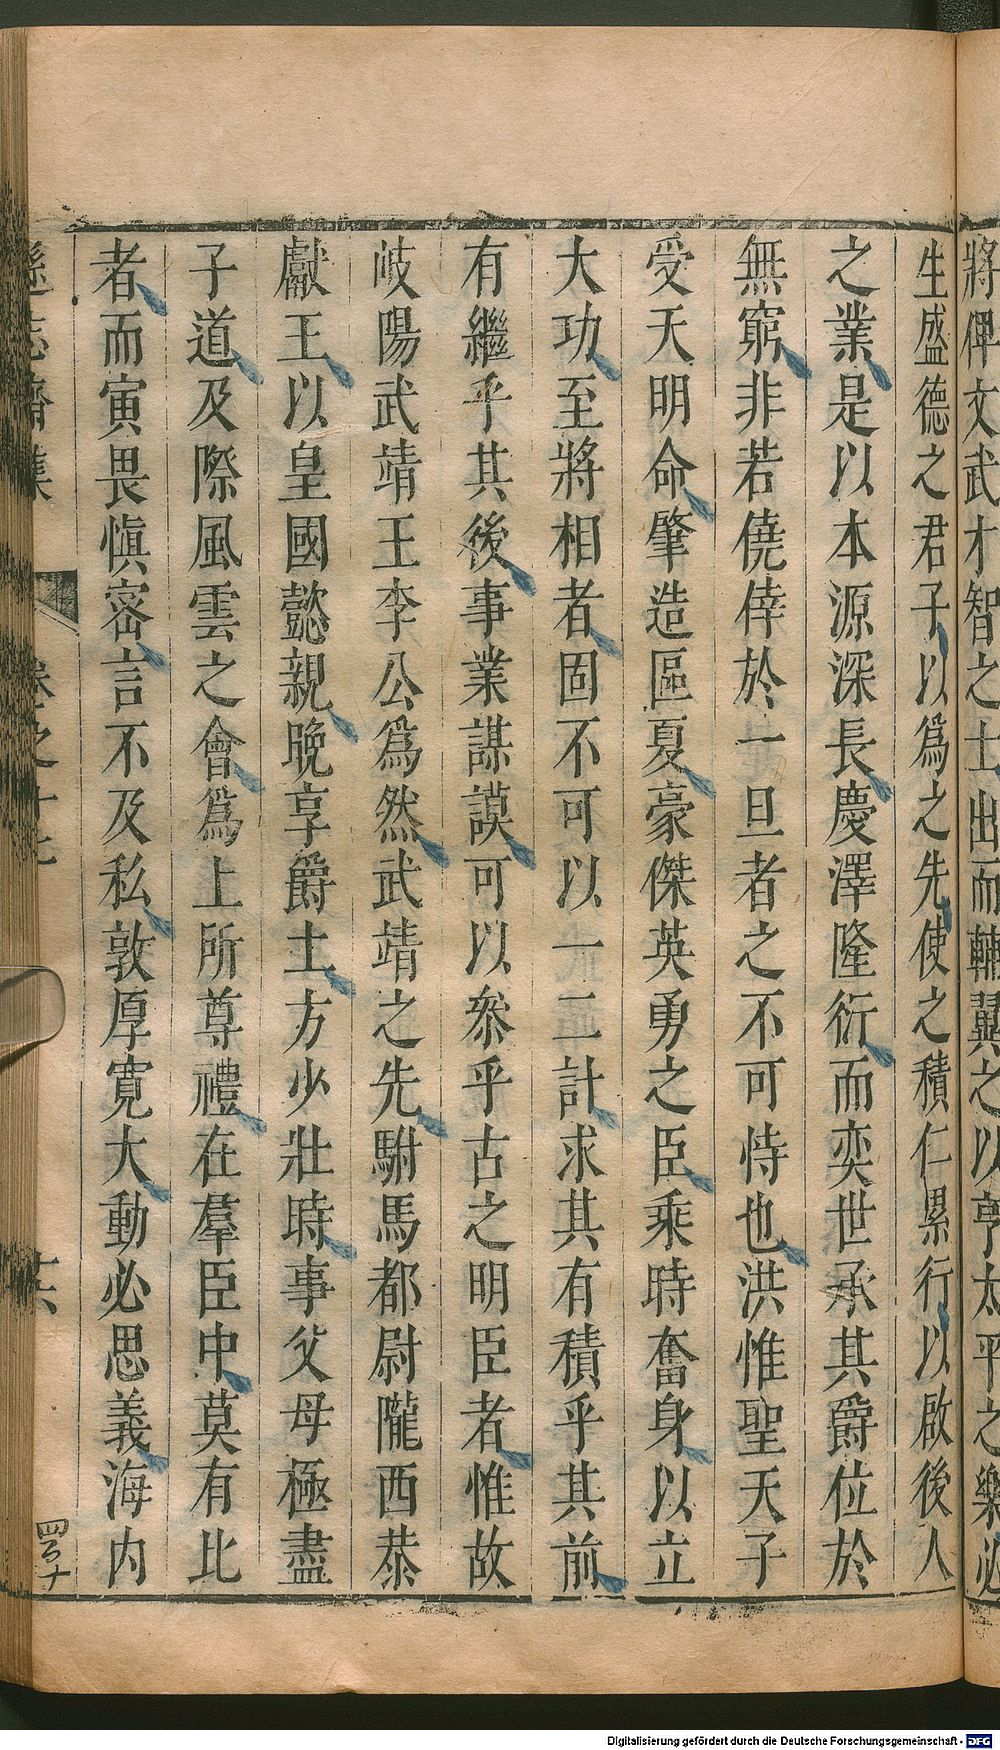 將俾文武才智之士出而輔翼之以亨太平之樂必
生盛德之君子以爲之先使之積仁累行以啟後人
之業是以本源深長慶澤隆衍而奕世承其爵位於
無窮非若僥倖於一旦者之不可恃也洪惟聖天子
受天明命肇造區夏豪傑英勇之臣乘時奮身以立
大功至將相者固不可以一二計求其有積乎其前
有繼乎其後事業謀謨可以叅乎古之明臣者惟故
岐陽武靖王李公爲然武靖之先駙馬都尉隴西恭
獻王以皇國懿親晚享爵土方少壯時事父母極盡
子道及際風雲之會爲上所尊禮在羣臣中莫有比
者而寅畏愼密言不及私敦厚寬大動必思義海内
遜志齋集 卷之十七 十六
Digitalisierung gefördert durch die Deutsche Forschungsgemeinschaft - DFG